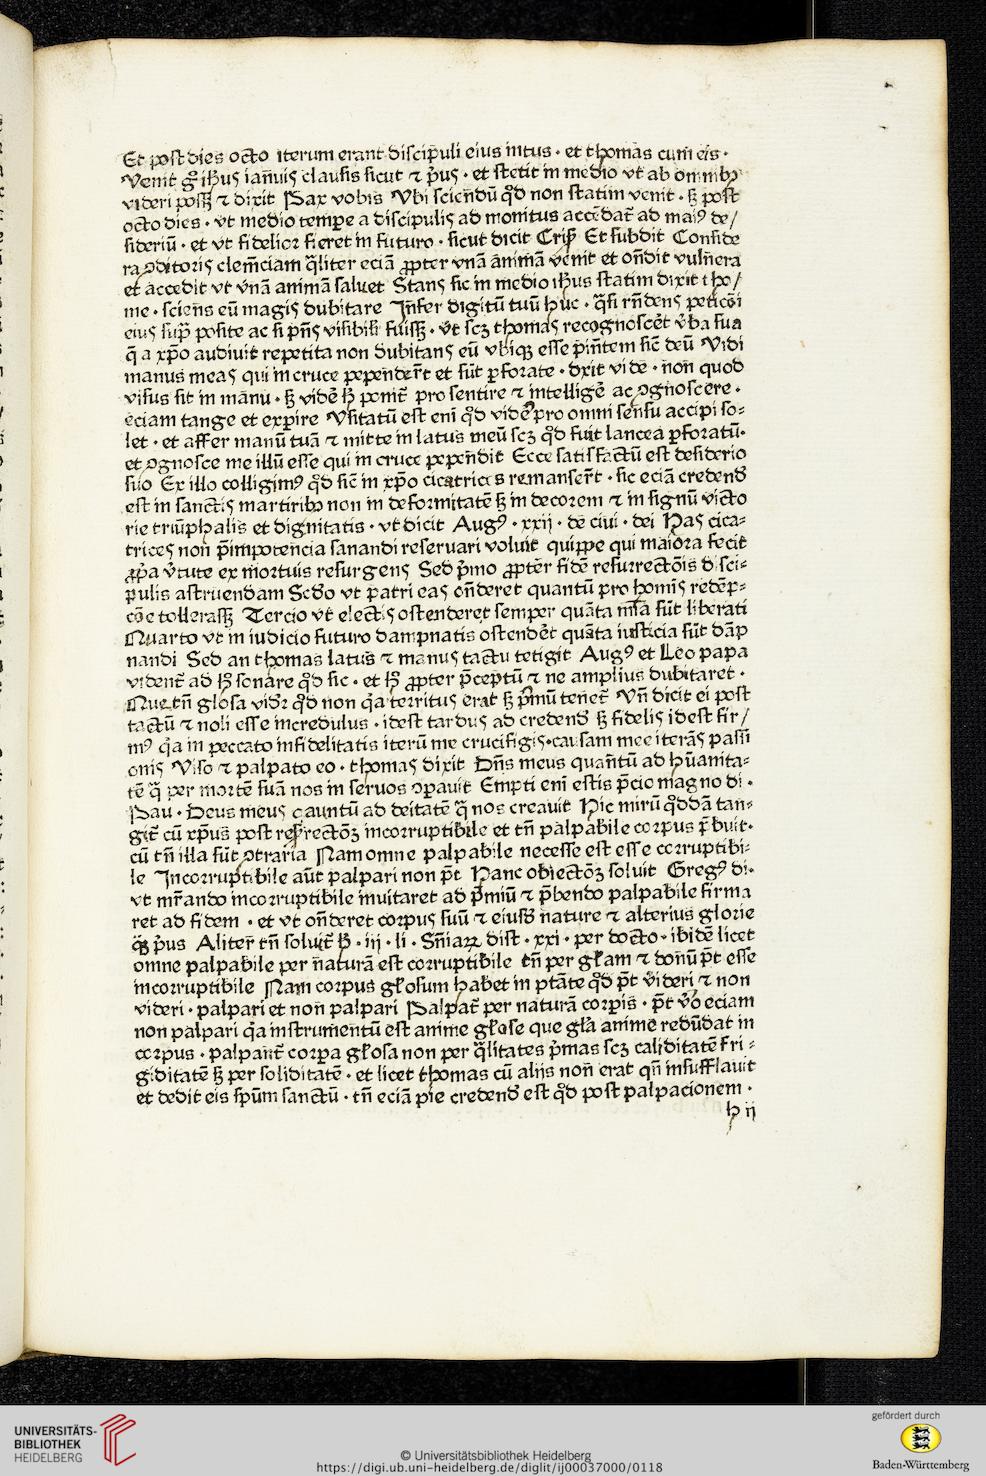 Et post dies octo iterum erant discipuli eius intus · et thomas cum eis ·
Venit gͦ ihūs ianuis clausis sicut ⁊ pͥus · et stetit in medio vt ab omnibꝫ
videri possꝫ ⁊ dixit Pax vobis Vbi sciendū qͦd non statim venit · sꝫ post
octo dies · vt medio tempe a discipulis ad monitus accēdat̄ ad maiꝰ de/
sideriū · et vt fidelior fieret in futuro · sicut dicit Cris̄ Et subdit Conside
ra ꝯditoris clemēciam qͣliter eciā ꝓpter vnā animā venit et on̄dit vulnera
et accedit vt vnā animā saluet Stans sic in medio ihūs statim dixit tho/
me · sciens eū magis dubitare Infer digitū tuū huc · qͣsi rn̄dens peticōi
eius supͣ posite ac si pn̄s visibilis fuissꝫ · vt scꝫ thomas recognoscēt v̄ba sua
q̄ a xp̄o audiuit repetita non dubitans eū vbiqꝫ esse pn̄tem sic̄ deū Vidi
manus meas qui in cruce pependert̄ et sūt ꝑforate · dxit vide · non quod
visus sit in manu · sꝫ videͤ hͦ ponit̄ pro sentire ⁊ intelligē ac ꝯgnoscere ·
eciam tange et experire Vsitatū est eni qͦd videͤ pro omni sensu accipi so=
let · et affer manū tuā ⁊ mitte in latus meū scꝫ qͦd fuit lancea ꝑforatū·
et ꝯgnosce me illū esse qui in cruce pependit Ecce satisfactū est desiderio
suo Ex illo colligimꝰ qͦd sic̄ in xp̄o cicatrices remansert̄ · sic eciā credend̄
est in sanctis martiribꝫ non in deformitatē sꝫ in decorem ⁊ in signū victo
rie triūphalis et dignitatis · vt dicit Augꝰ · xxij · de ciui · dei Has cica=
trices non p̄impotencia sanandi reseruari voluit quippe qui maiora fecit
ꝓpͥa v̄tute ex mortuis resurgens Sed pͥmo ꝓpter fidē resurrectōis disci=
pulis astruendam Scd̄o vt patri eas on̄deret quantū pro homīs redēp=
cōe tollerassꝫ Tercio vt electis ostenderet semper quāta mīa sūt liberati
Quarto vt in iudicio futuro dampnatis ostendēt quāta iusticia sūt dāp
nandi Sed an thomas latus ⁊ manus tactu tetigit Augꝰ et Leo papa
vident̄ ad hͦ sonare qͦd sic · et hͦ ꝓpter p̄ceptū ⁊ ne amplius dubitaret ·
tn̄ glosa vidr̄ qͦd non qͥa territus erat sꝫ pͥmū tenet̄ Vn̄ dicit ei post
tactū ⁊ noli esse incredulus · idest tardus ad credend̄ sꝫ fidelis idest fir/
mꝰ qͥa in peccato infidelitatis iterū me crucifigis·causam mee iterās passi
onis Viso ⁊ palpato eo · thomas dixit Dn̄s meus quantū ad hūanita=
tē qͣ per mortē suā nos in seruos ꝯpauit Empti eni estis p̄cio magno di ·
Pau · Deus meus qauntū ad deitatē qͣ nos creauit Hic mirū qͦddā tan=
git̄ cū xp̄us post resurrectōꝫ incorruptibile et tn̄ palpabile corpus p̄buit·
cū tn̄ illa sūt ꝯtraria Nam omne palpabile necesse est esse corruptibi=
le Incorruptibile aūt palpari non pt̄ Hanc obiectōꝫ soluit Gregꝰ di·
vt mr̄ando incorruptibile inuitaret ad pͥmiū ⁊ p̄bendo palpabile firma
ret ad fidem · et vt on̄deret corpus suū ⁊ eiusd̄ nature ⁊ alterius glorie
pͥus Aliter tn̄ soluit̄ · iij · li · Sn̄iaꝝ dist · xxi · per docto · ibidē licet
omne palpabile per naturā est corruptibile tn̄ per glam ⁊ donū pt̄ esse
incorruptibile Nam corpus glosum habet in ptāte qͦd pt̄ videri ⁊ non
videri · palpari et non palpari Palpat̄ per naturā corpis · pt̄ vͦ eciam
non palpari qͥa instrumentū est anime glose que glā anime redūdat in
corpus · palpant̄ corpa glosa non per qͣlitates pͥmas scꝫ caliditatē fri=
giditatē sꝫ per soliditatē · et licet thomas cū aliis non erat qn̄ insufflauit
et dedit eis spūm sanctū · tn̄ eciā pie credend̄ est qͦd post palpacionem ·
h ij
UNIVERSITÄTS-
BIBLIOTHEK
HEIDELBERG
© Universitätsbibliothek Heidelberg
https://digi.ub.uni-heidelberg.de/diglit/ij00037000/0118
gefördert durch
Baden-Württemberg